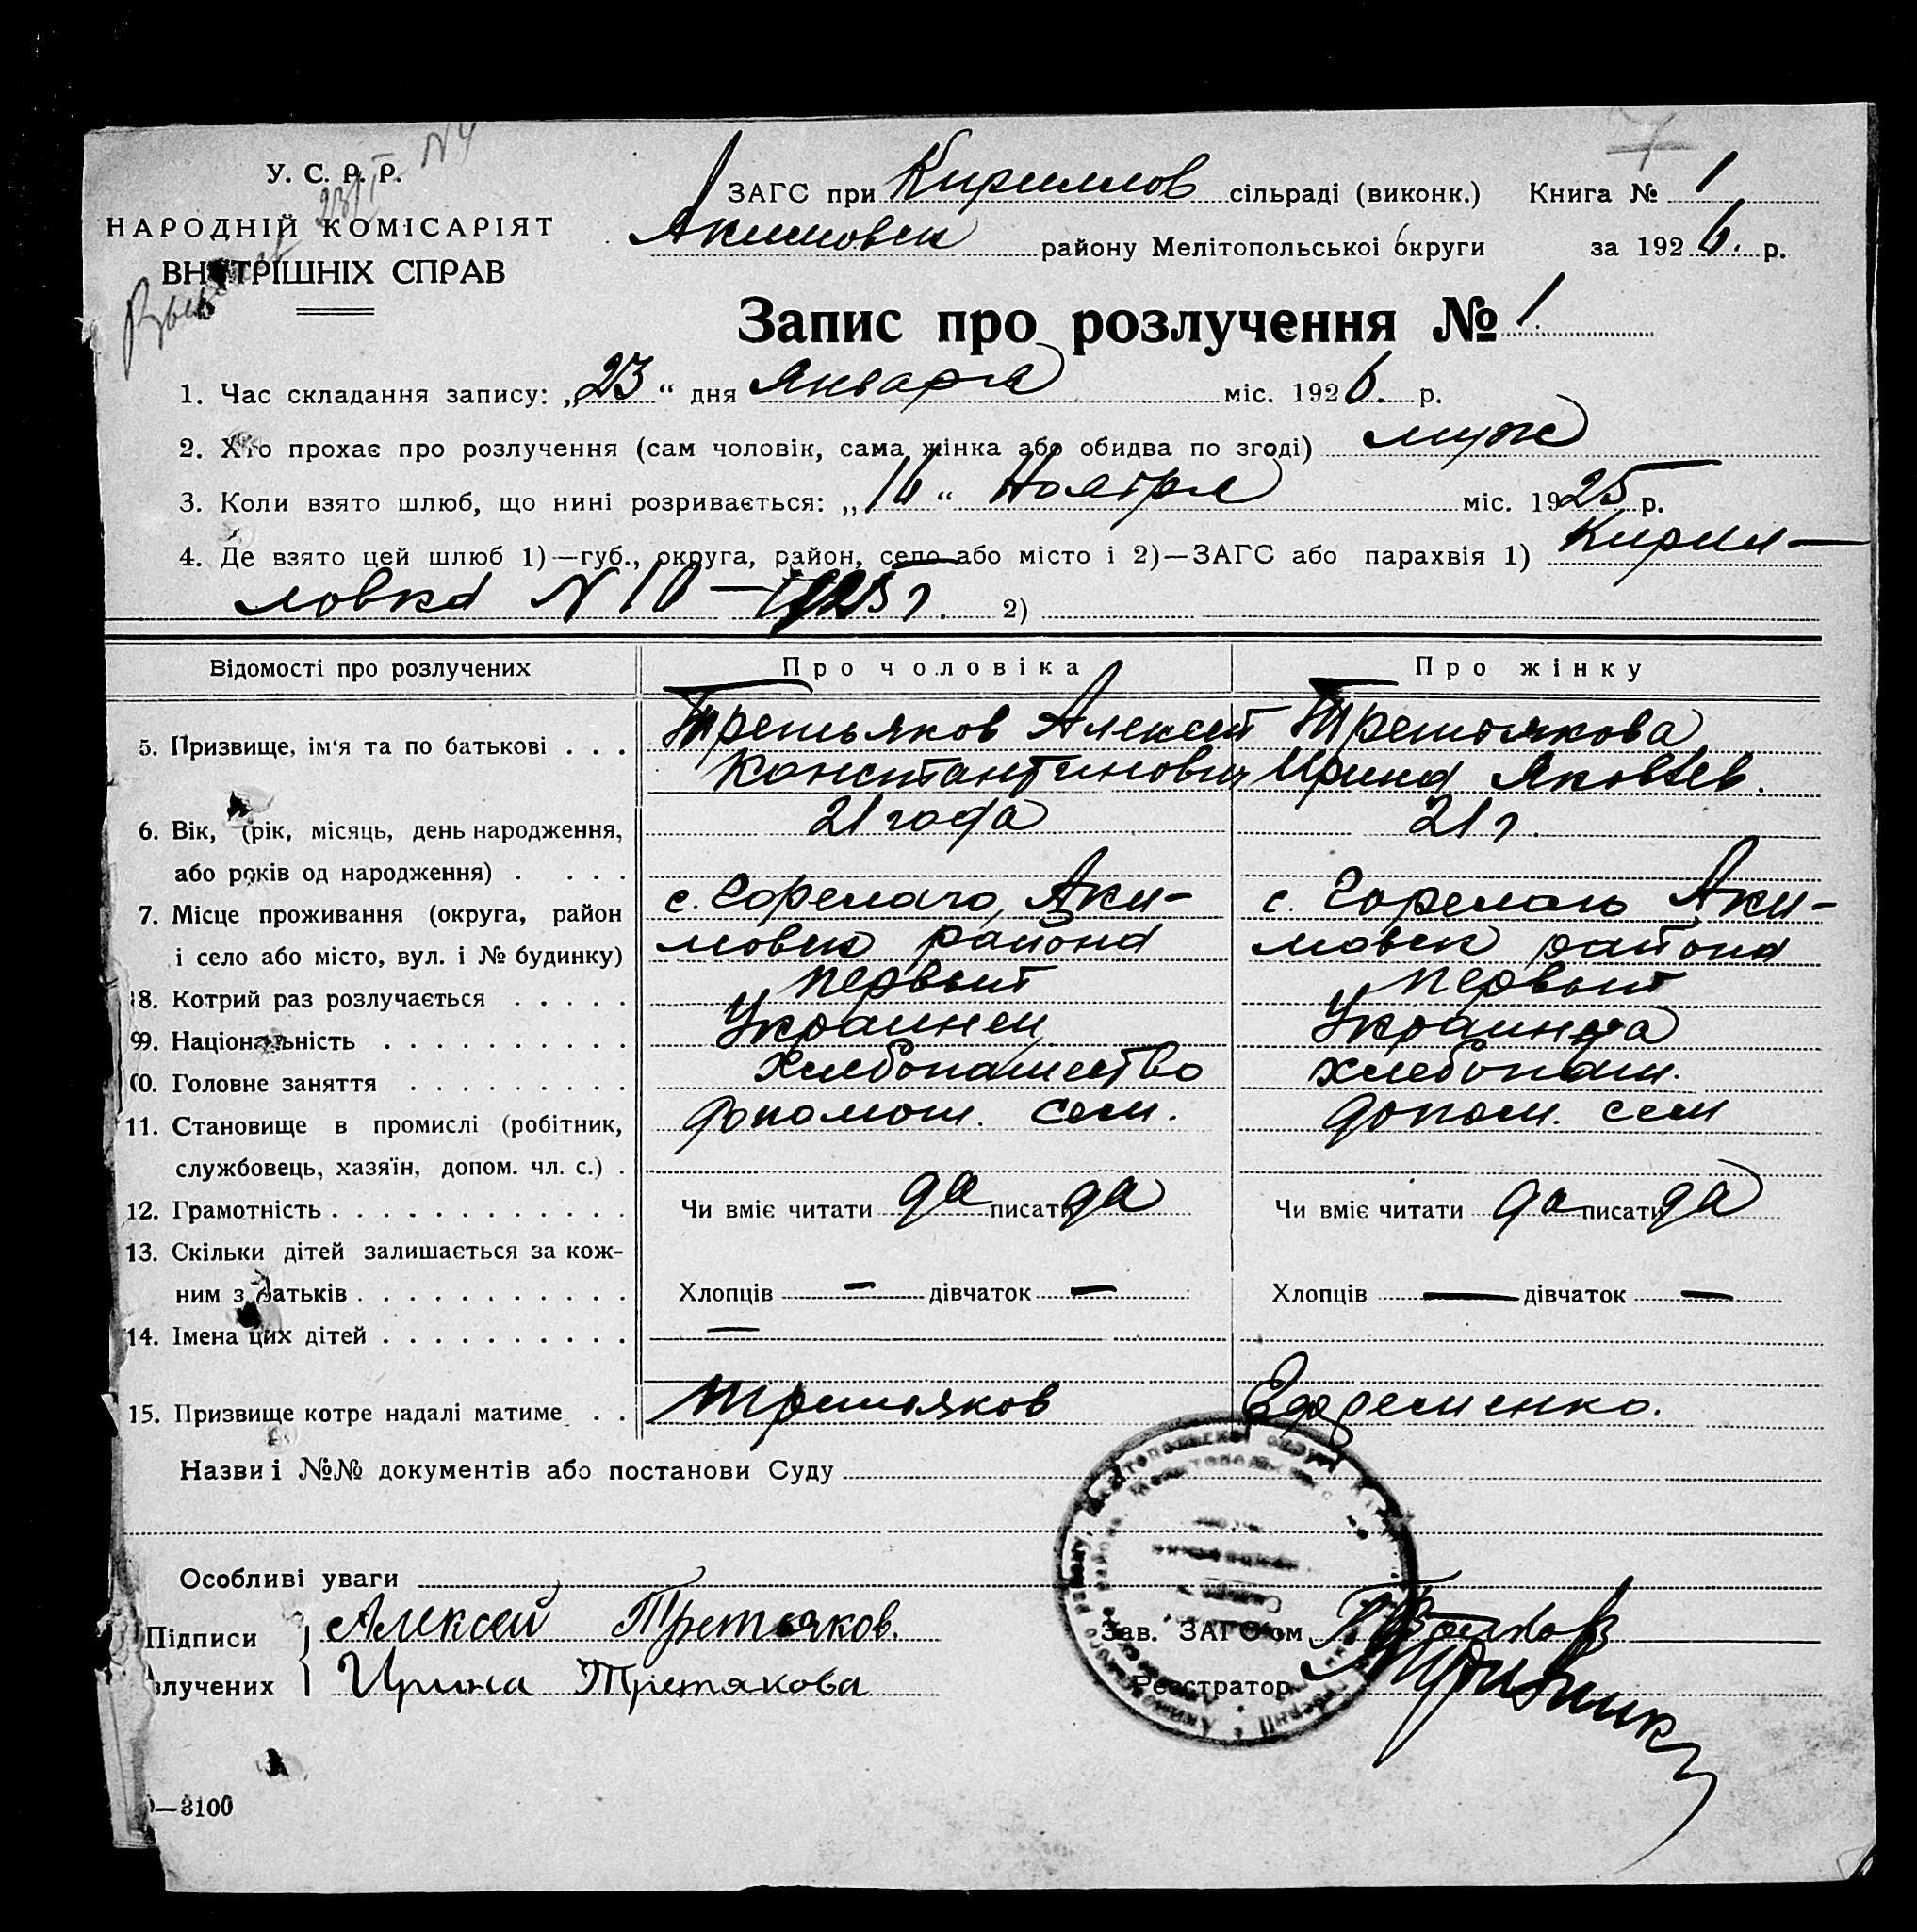 У. С. Р. Р.
НАРОДНІЙ КОМІСАРІЯТ
ВНУТРІШНІХ СПРАВ
N 4
23/I
7
ЗАГС при Кириллов сільраді (виконк.) Книга № 1
Акимовск району Мелітопольської округи за 1926. р.
Запис про розлучення № 1.
1. Час складання запису: „23“ дня Января міс. 1926. р.
2. Хто прохає про розлучення (сам чоловік, сама жінка або обидва по згоді) муж
3. Коли взято шлюб, що нині розривається: „16“ Ноября міс. 1925 р.
4. Де взято цей шлюб 1)—губ., округа, район, село або місто і 2)—ЗАГС або парахвія 1) Кирил—
ловка N 10 — 1925 г. 2)
Відомості про розлучених Про чоловіка Про жінку
5. Призвище, ім‘я та по батькові . . . Третьяков Алексей Третьякова
Константинович Ирина Яковлев.
6. Вік, (рік, місяць, день народження, 21 года 21 г.
або років од народження) . . . .
7. Місце проживання (округа, район с. Горелаго Аки- с. Горелаго Аки-
і село або місто, вул. і № будинку) мовск района мовск района
8. Котрий раз розлучається . . . . . первый первый
9. Національність . . . . . . . . . . Украинец Украинка
10. Головне заняття . . . . . . . . . Хлебопашество хлебопаш.
11. Становище в промислі (робітник, допомош. сем. допом. сем
службовець, хазяїн, допом. чл. с.) .
12. Грамотність . . . . . . . . . . . . Чи вміє читати да писати да Чи вміє читати да писати да
13. Скільки дітей залишається за кож-
ним з батьків . . . . . . . . . . . Хлопців — дівчаток — Хлопців — дівчаток —
14. Імена цих дітей . . . . . . . . . . —
15. Призвище котре надалі матиме . . Третьяков Ефременко.
Назви і №№ документів або постанови Суду
Особливі уваги
Підписи Алексей Третьяков. Зав. ЗАГС‘ом
злучених Ирина Третякова Реєстратор
—3100